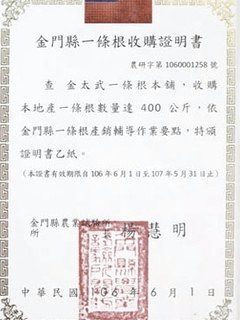 金門縣一條根收購證明書
農研字第1060001258號
查 金太武一條根本舖，收購
本地產一條根數量達 400 公斤，依
金門縣一條根產銷輔導作業要點，特頒
證明書乙紙。
（本證書有效期限自106年6月1日至107年5月31日止）
金門縣農業試驗所
所長 楊慧明
中華民國106年6月1日